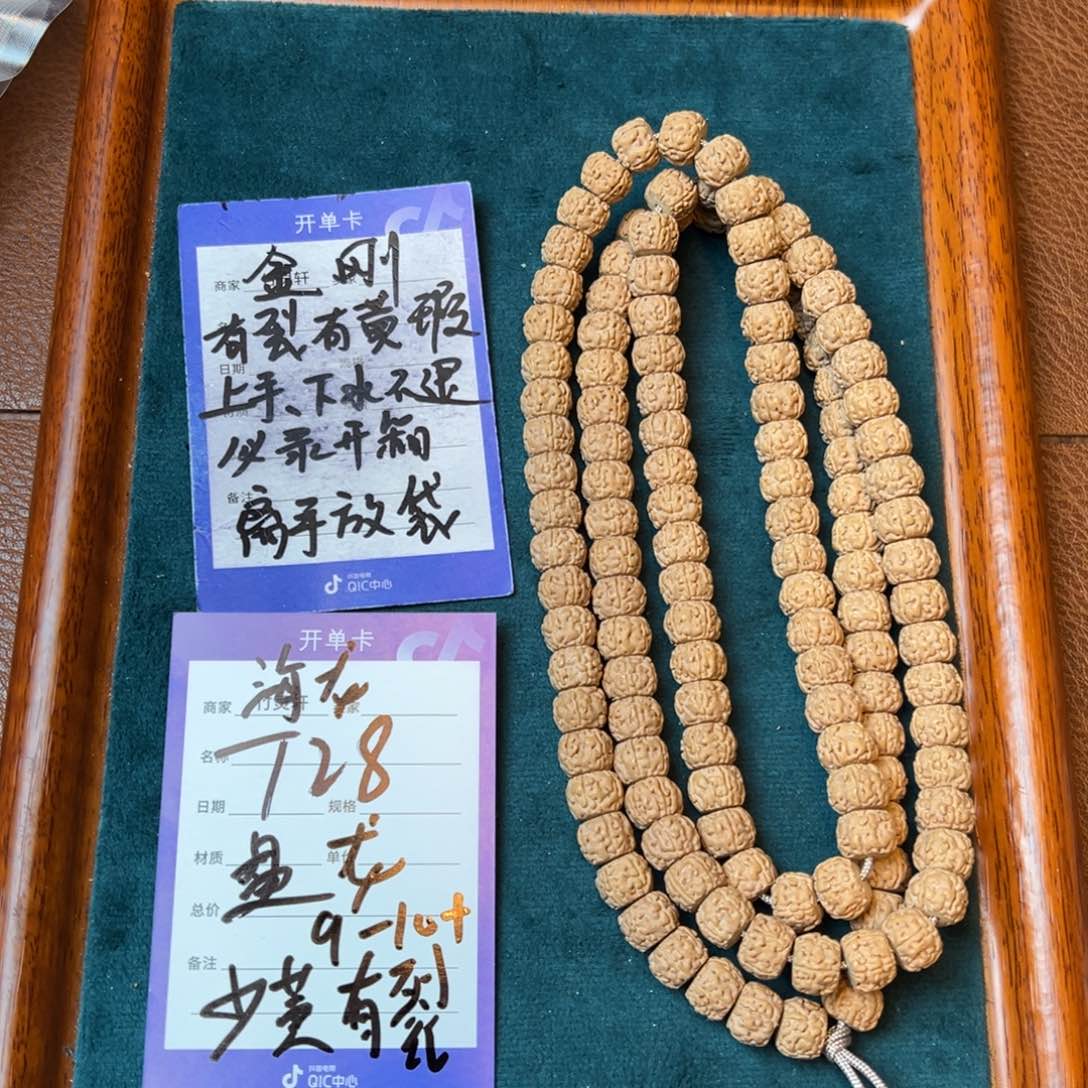 开单卡
金刚
商家 轩
有裂有黄瑕
日期
上手、下水不退
必录开箱
备注
离手放袋
抖音电商
QIC中心
开单卡
海龙
商家 竹 轩
名称
T28
日期 规格
材质 单价
盘龙
总价
9-10+
备注
少黄有裂
抖音电商
QIC中心